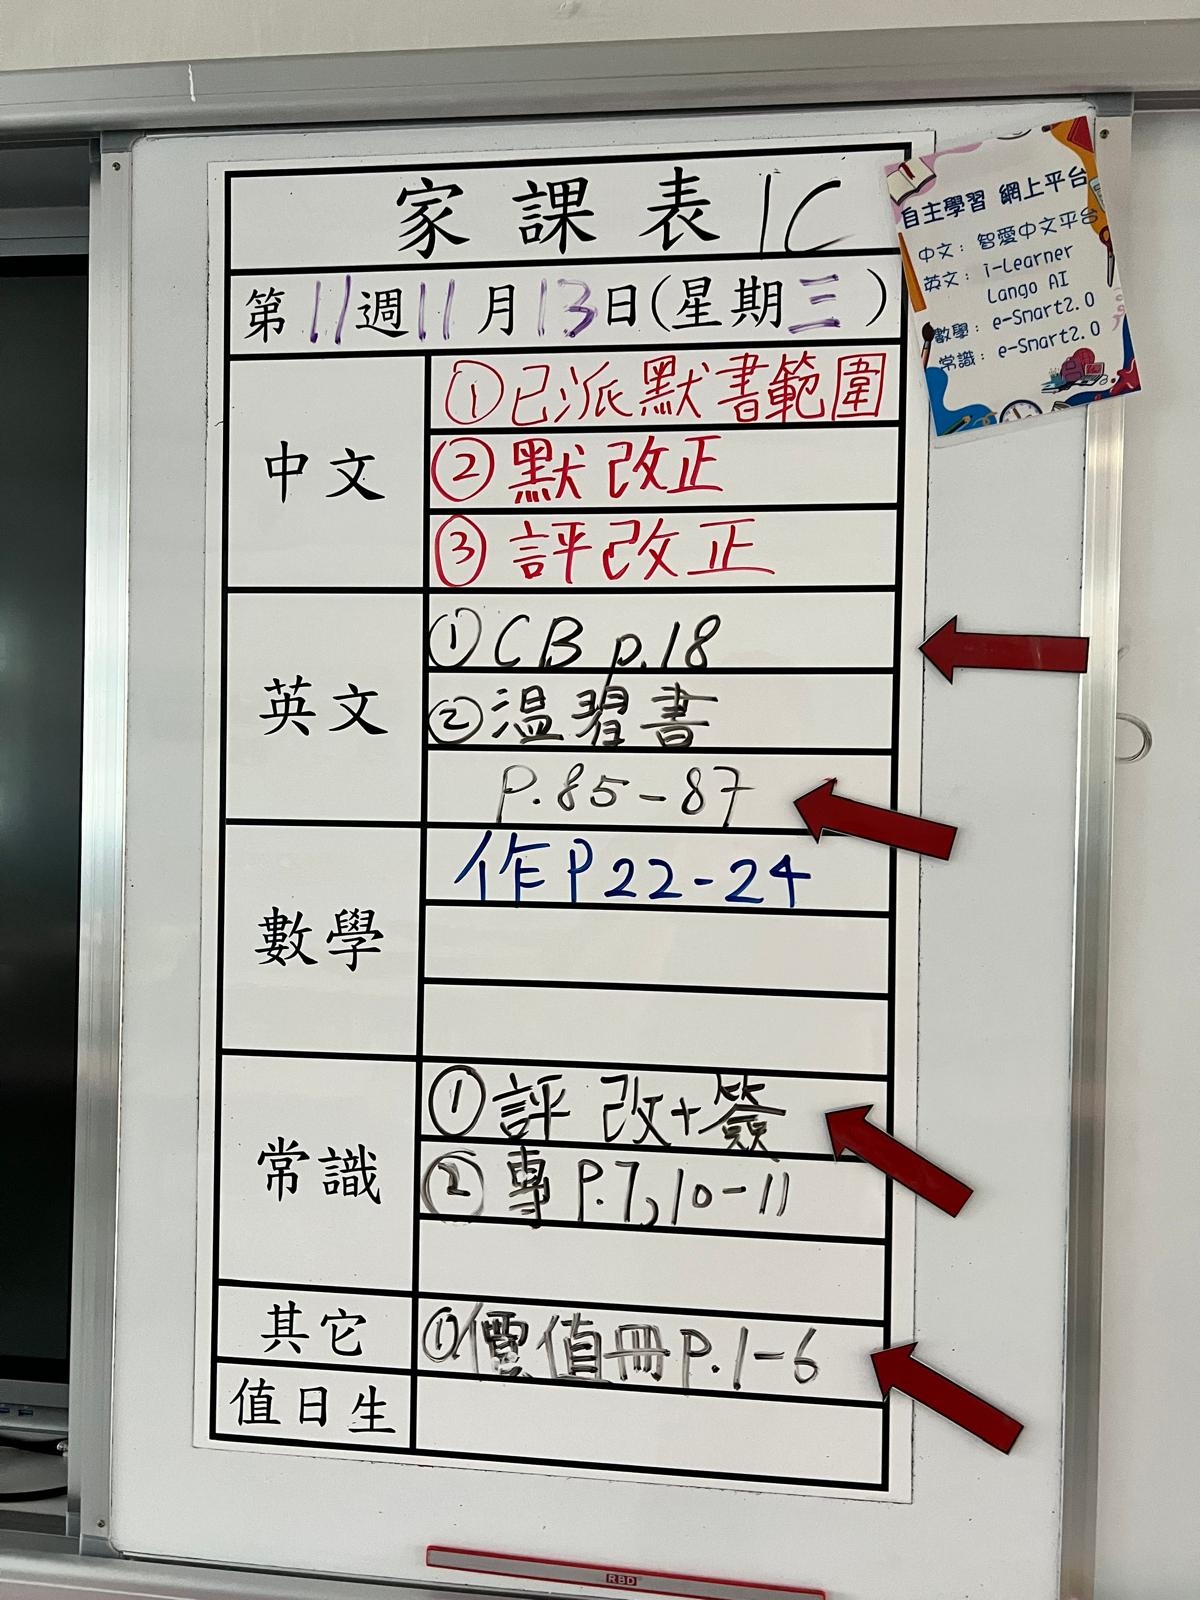 家課表 1C
第11週11月13日(星期三)
中文
①已派默書範圍
②默改正
③評改正
英文
①CB p.18
②溫習書
P.85-87
數學
作P22-24
常識
①評 改+簽
②專P.7,10-11
其它
①價值冊P.1-6
值日生
自主學習 網上平台
中文：智愛中文平台
英文：i-Learner
Lango AI
數學：e-Smart2.0
常識：e-Smart2.0
RBD